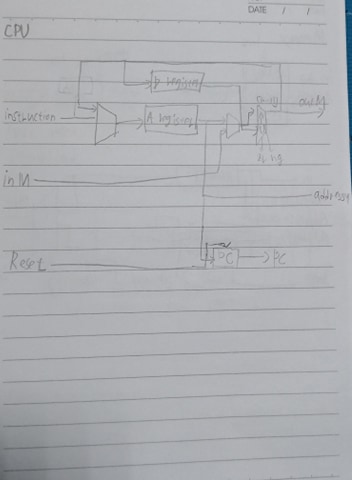 DATE / /
CPU
D register
outM
instruction
A register
in M
address
Reset
PC
PC